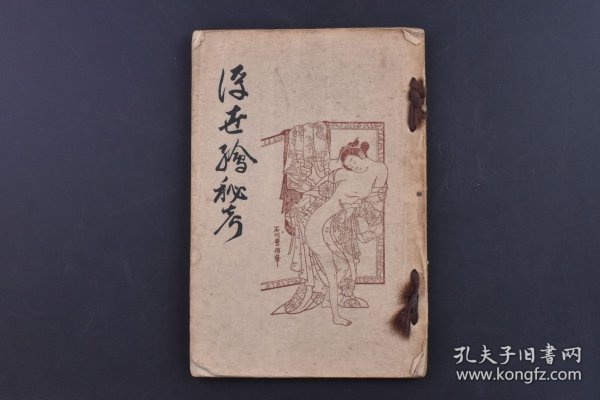 浮世繪秘考
石川豊信筆
孔夫子旧书网
www.kongfz.com